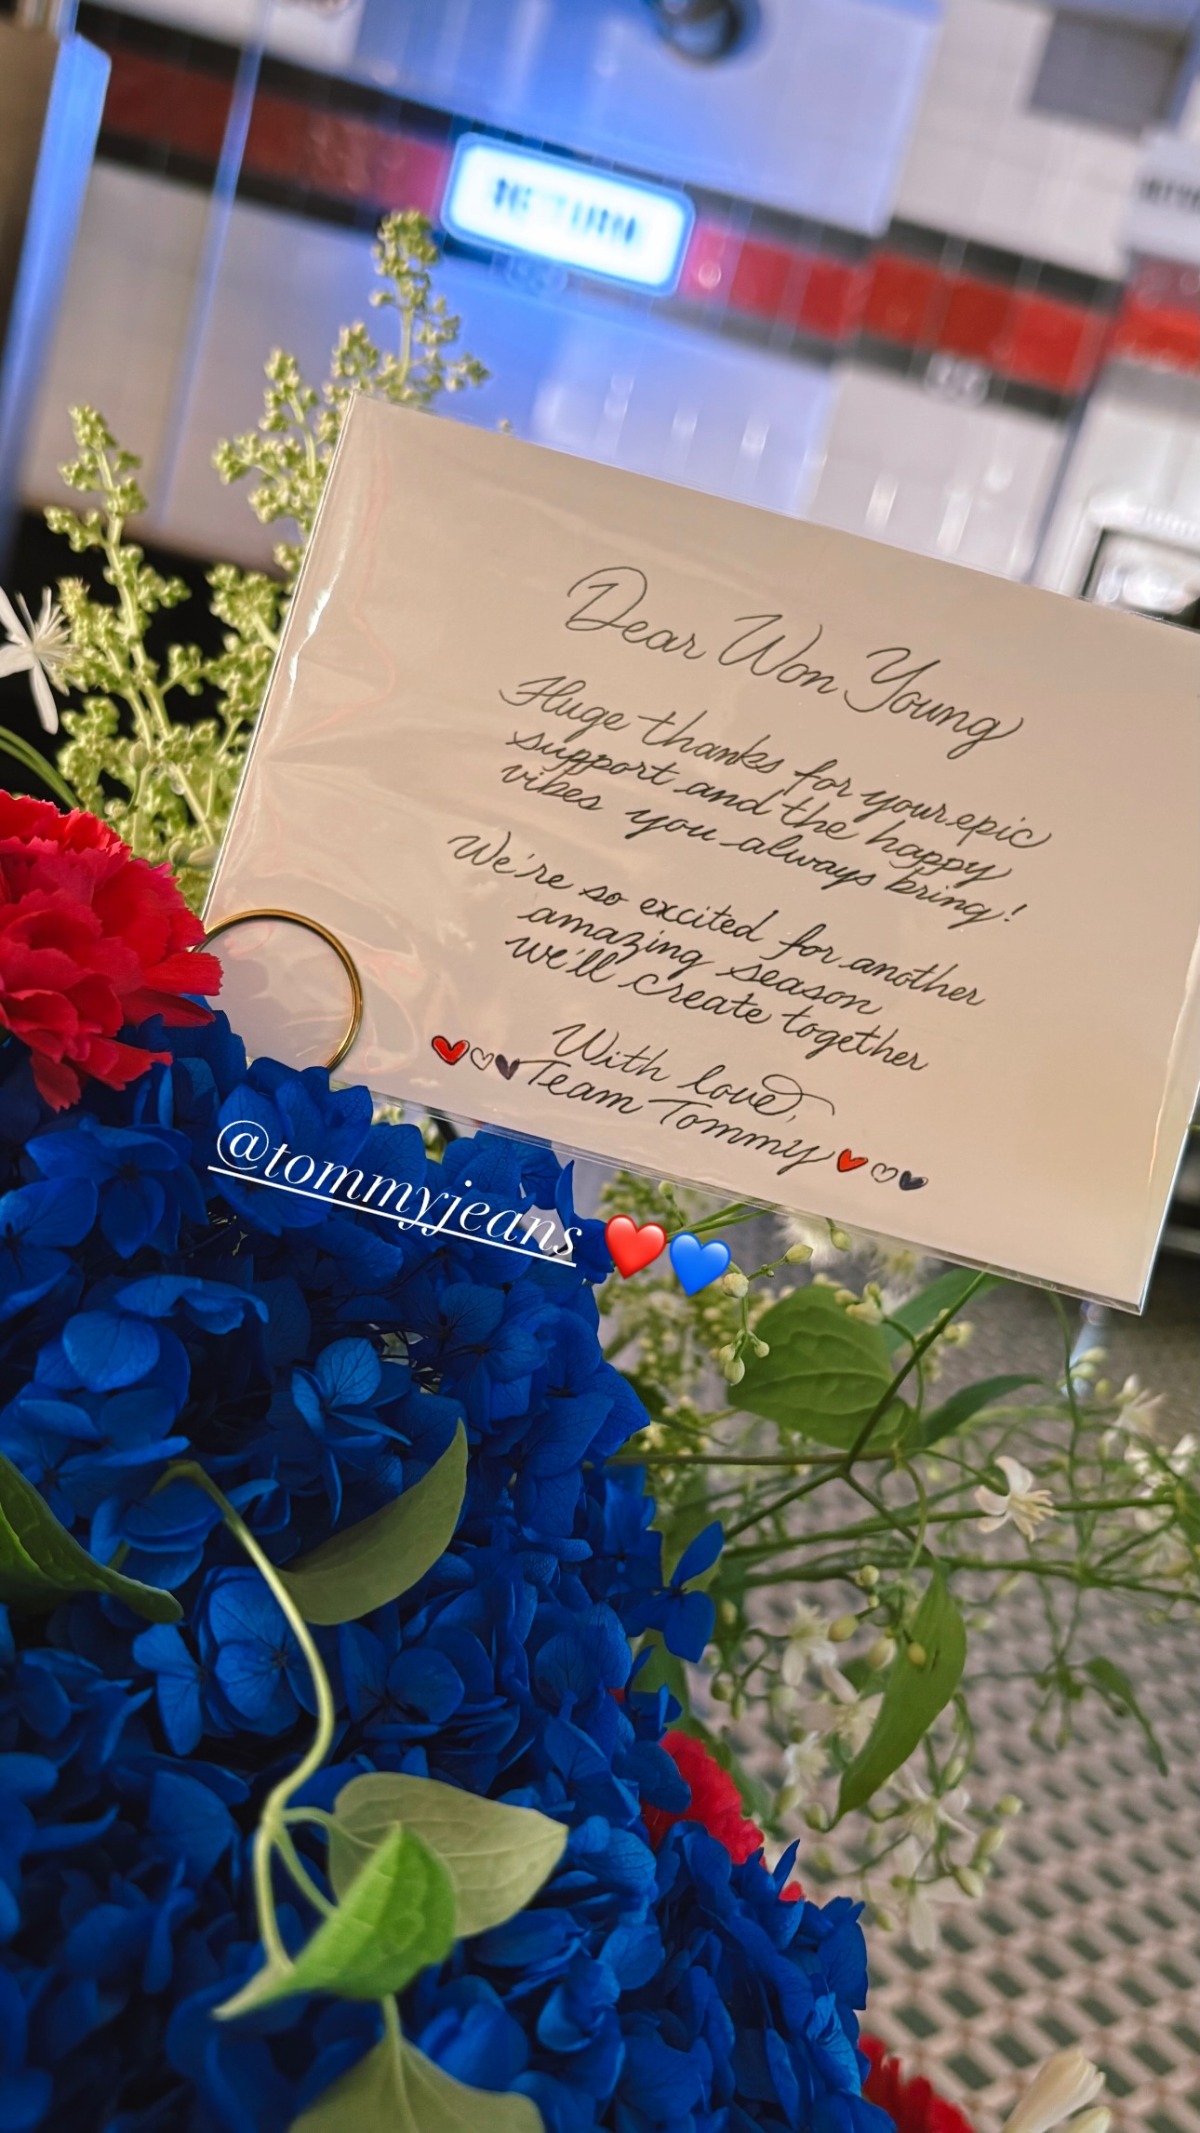 Dear Won Young
Huge thanks for your epic
support and the happy
vibes you always bring!
We're so excited for another
amazing season
we'll create together
With love,
❤️🤍🖤 Team Tommy ❤️🤍🖤
@tommyjeans ❤️💙